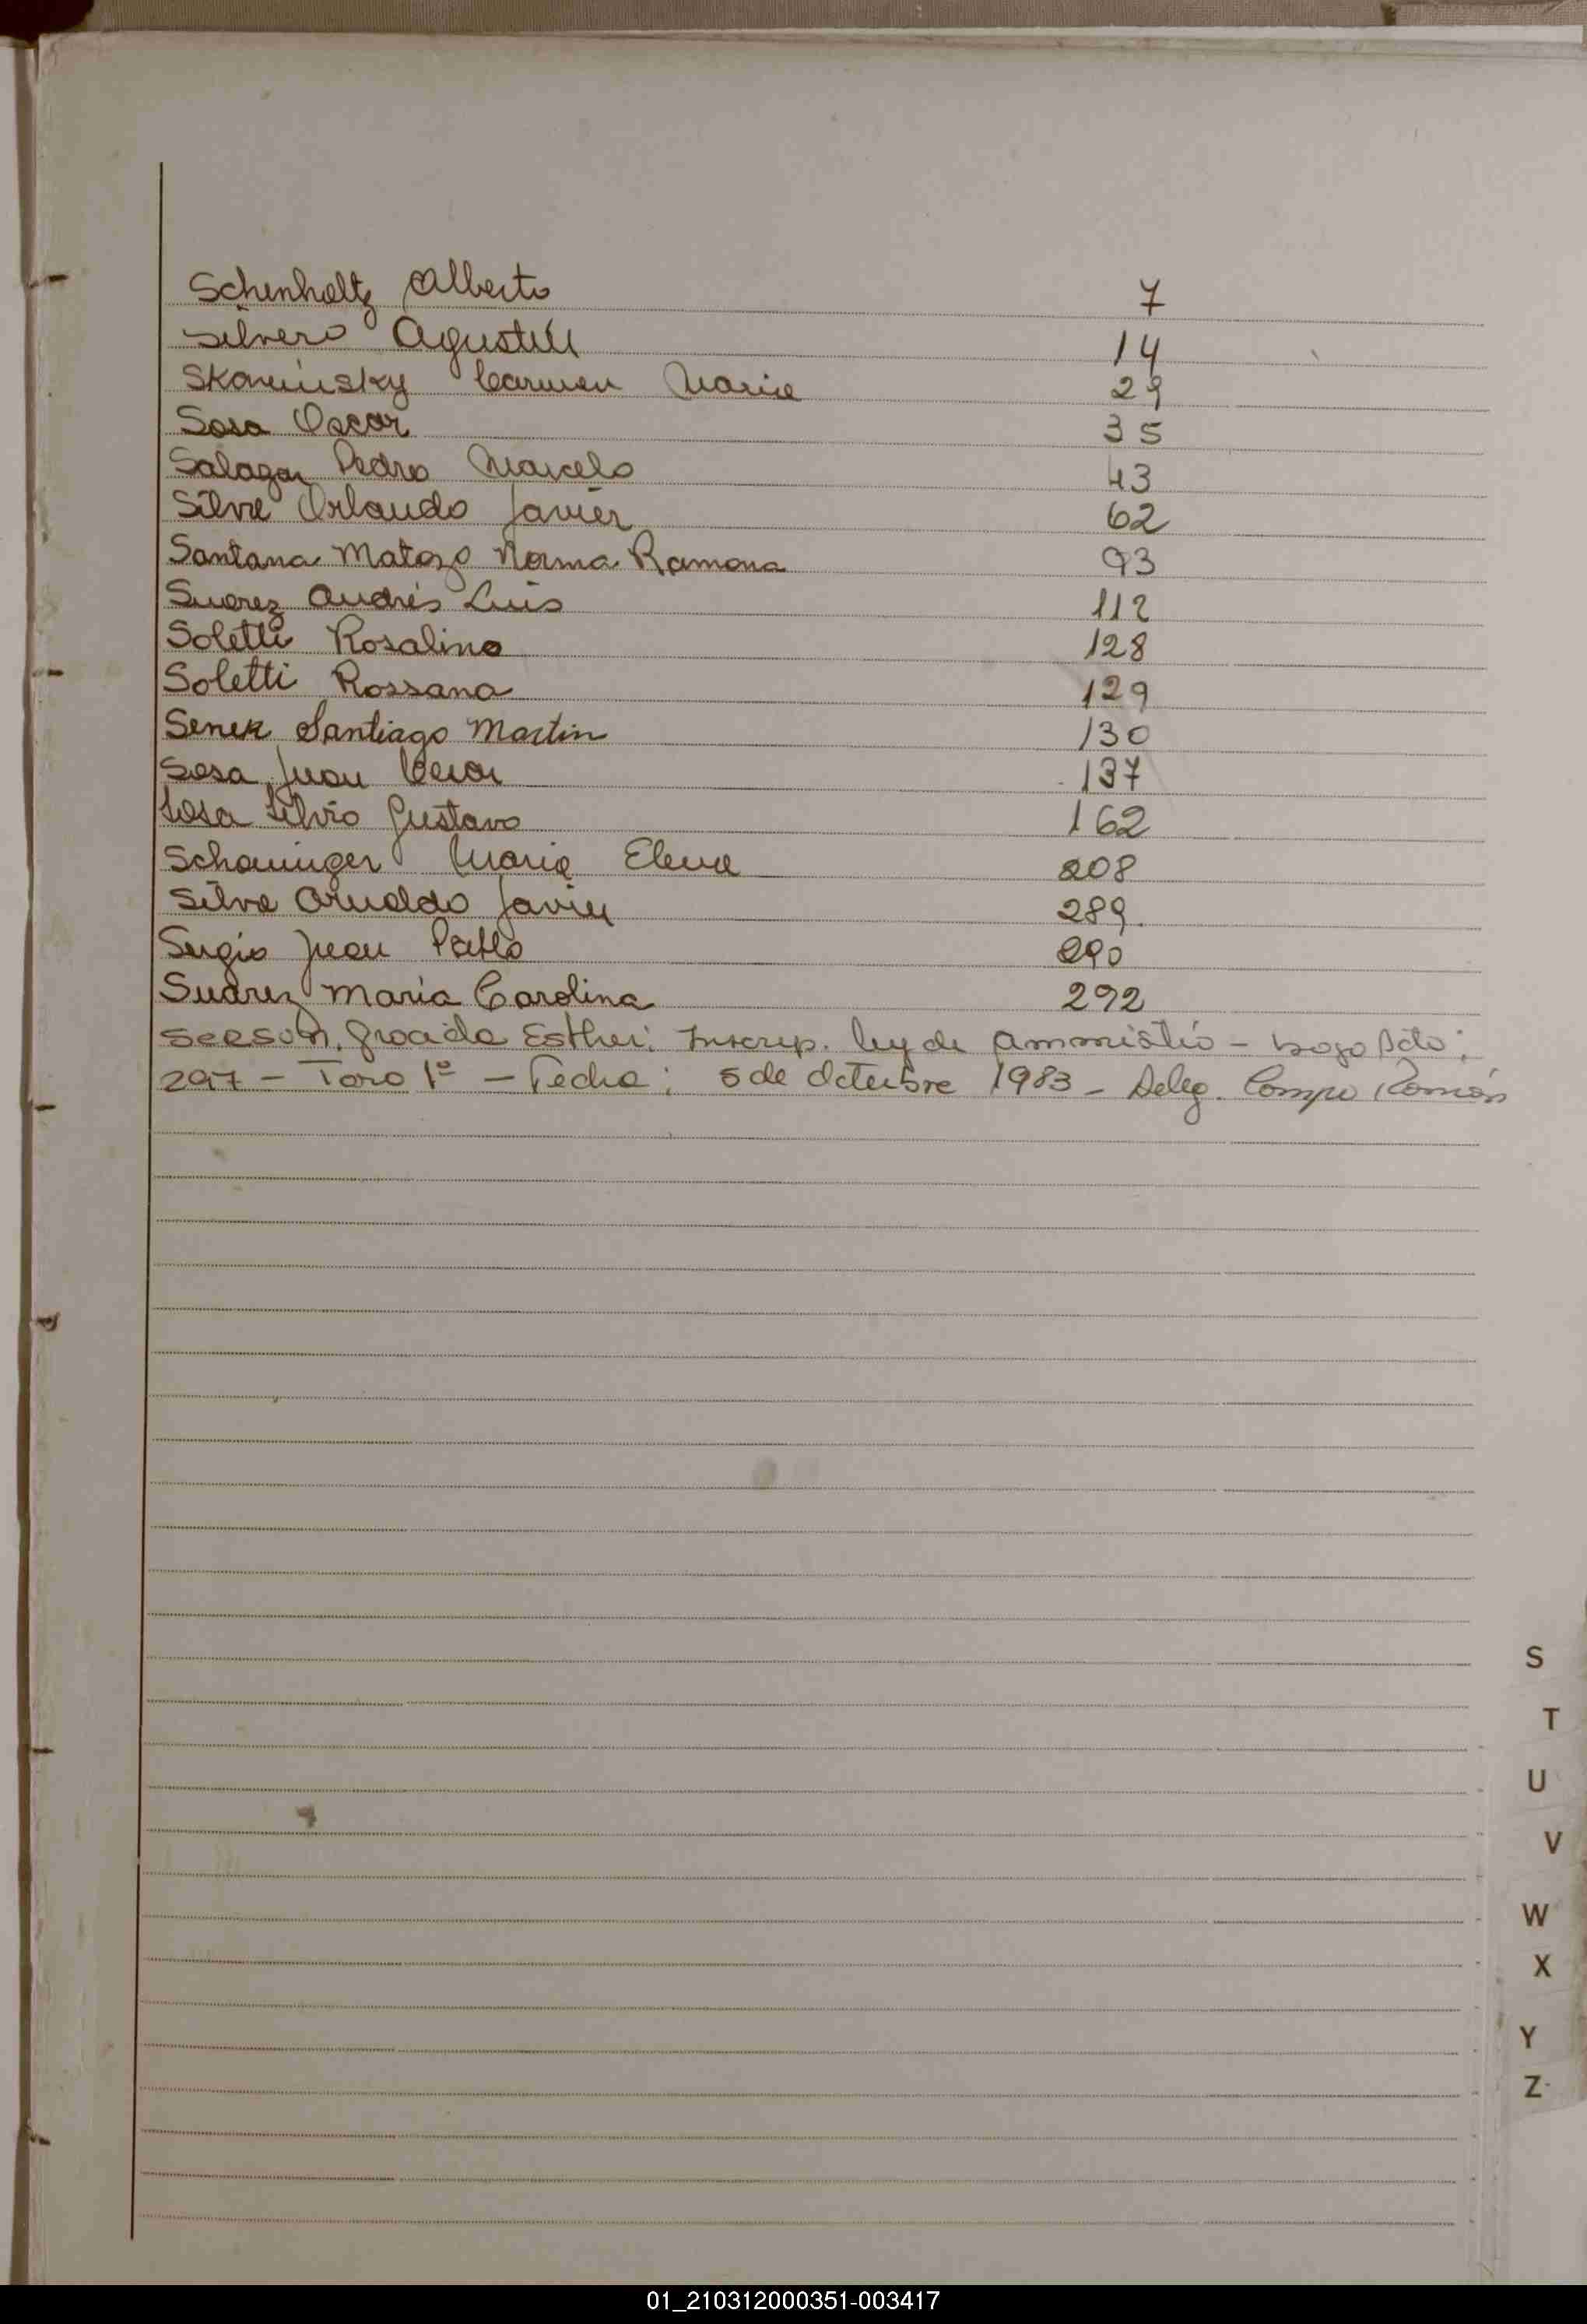 Schenholtz Alberto 7
Silvero Agustin 14
Skaminsky Carmen Maria 29
Sosa Oscar 35
Salazar Pedro Marcelo 43
Silva Orlando Javier 62
Santana Matozo Norma Ramona 93
Suarez Andrés Luis 112
Soletti Rosalino 128
Soletti Rossana 129
Senek Santiago Martin 130
Sosa Juan 137
Sosa Silvio Gustavo 162
Schaminger Maria Elena 208
Silva Arnaldo Javier 289
Sergio Juan Pablo 290
Suárez Maria Carolina 292
Graciela Esther: Inscrip. ley de ammistio - bajo Acto:
297 - Tomo 1º - Fecha: 5 de Octubre 1983 - Deleg. Campo Ramón
S
T
U
V
W
X
Y
Z
01_210312000351-003417